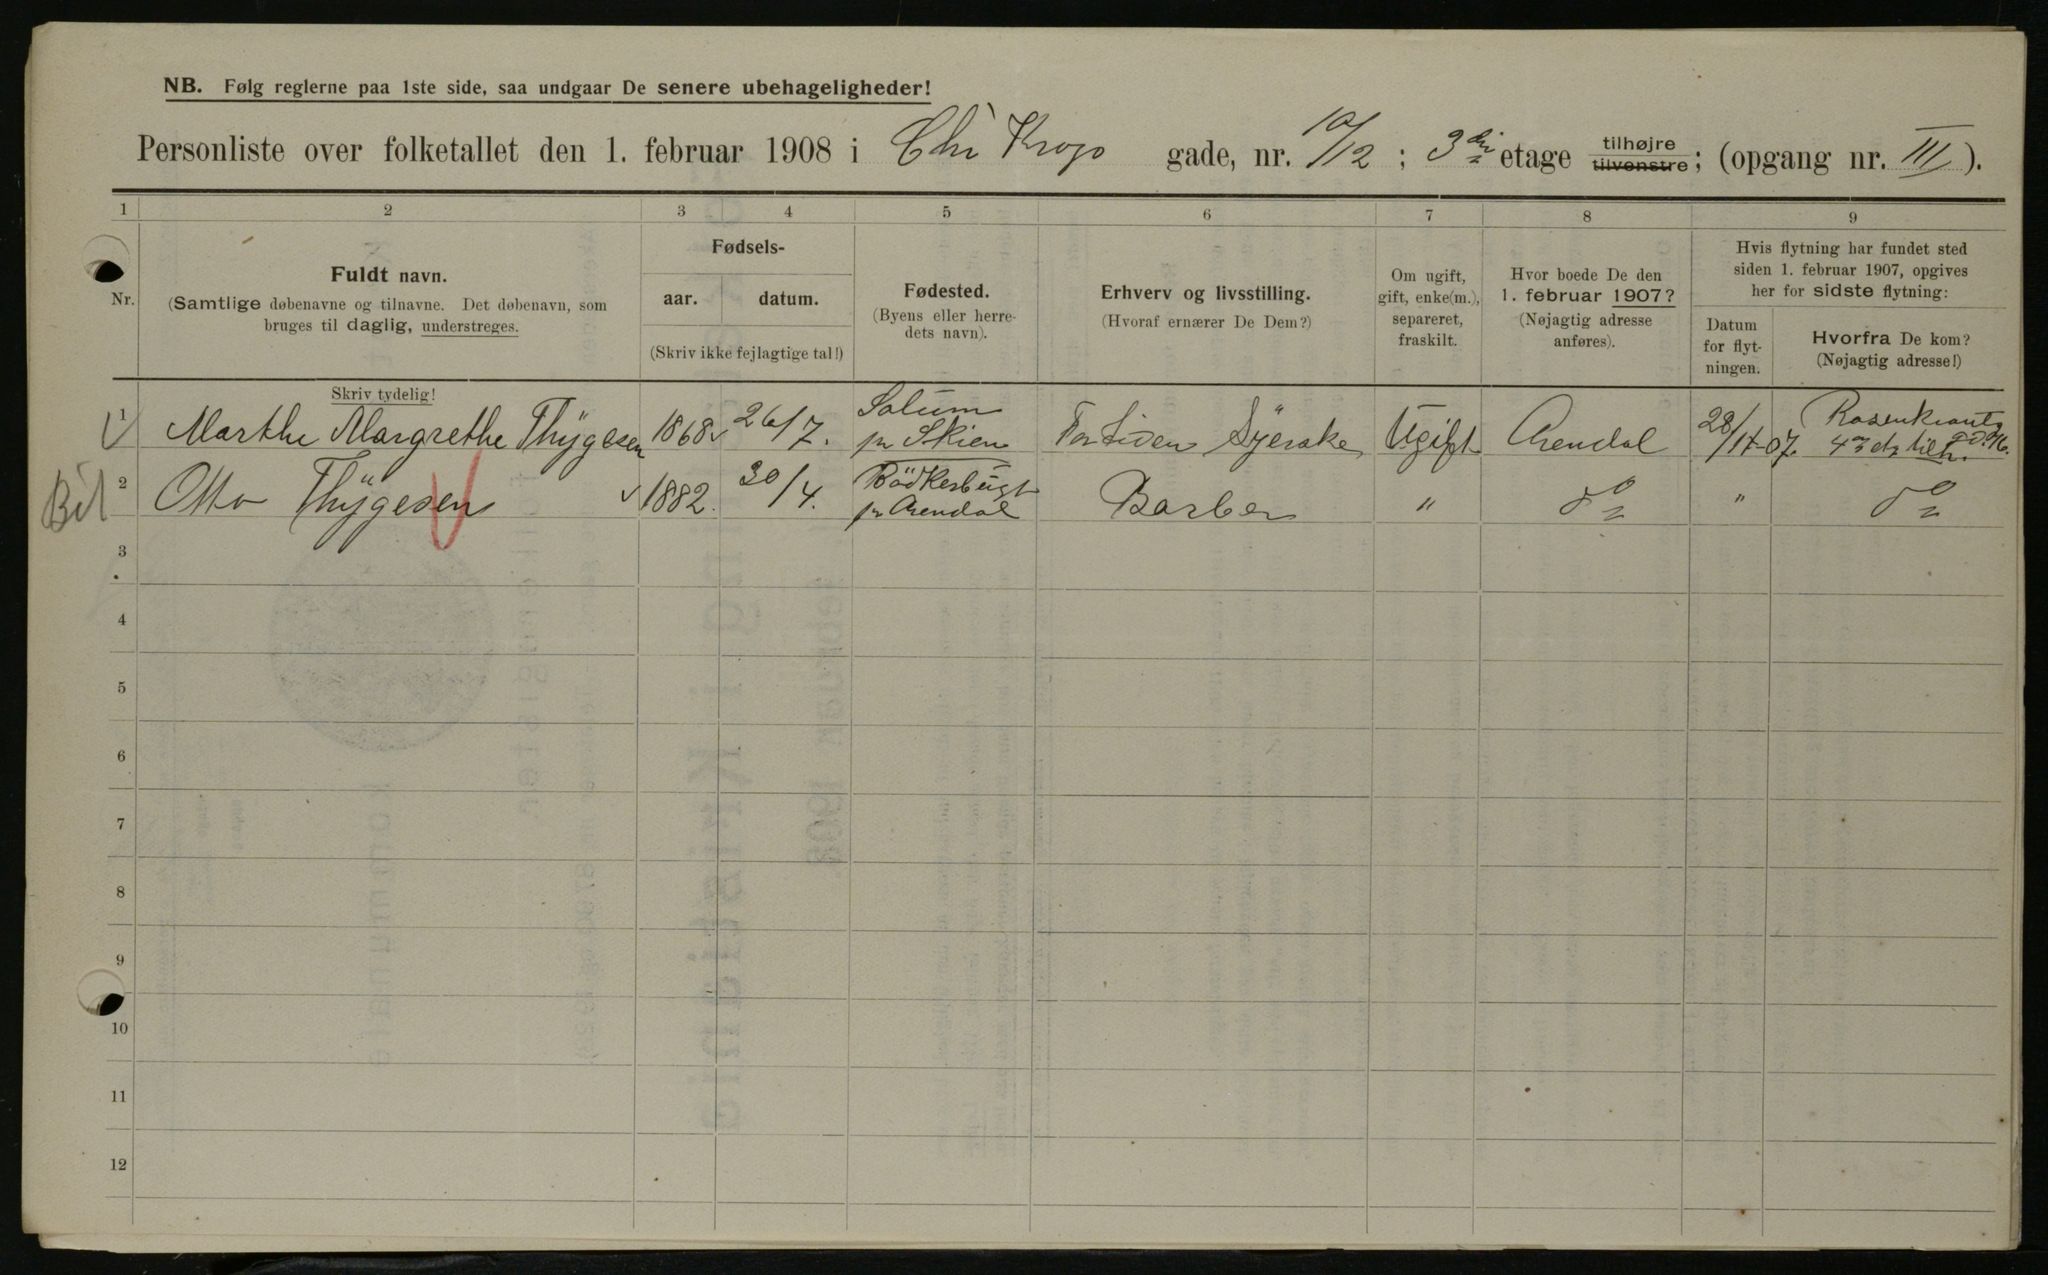 NB. Følg reglerne paa 1ste side, saa undgaar De senere ubehageligheder!
Personliste over folketallet den 1. februar 1908 i Chr Krogs gade, nr. 10/12 ; 3die etage tilhøjre tilvenstre; (opgang nr. III ).
1 2 3 4 5 6 7 8 9
Nr.
Fuldt navn.
(Samtlige døbenavne og tilnavne. Det døbenavn, som
bruges til daglig, understreges.
Skriv tydelig!
Fødsels-
aar. datum.
(Skriv ikke fejlagtige tal!)
Fødested.
(Byens eller herre-
dets navn).
Erhverv og livsstilling.
(Hvoraf ernærer De Dem?)
Om ugift,
gift, enke(m.),
separeret,
fraskilt.
Hvor boede De den
1. februar 1907?
(Nøjagtig adresse
anføres).
Hvis flytning har fundet sted
siden 1. februar 1907, opgives
her for sidste flytning:
Datum
for flyt-
ningen.
Hvorfra De kom?
(Nøjagtig adresse!)
1 Marthe Margrethe Thÿgesen 1868 26/7. Solum pr Skien For tiden Sÿerske Ugift Arendal 28/11-07. Rosenkrantz 43 etg tilh.
Bil 2 Otto Thÿgesen 1882. 30/4. pr Arendal Barber " do " do
3
4
5
6
7
8
9
10
11
12